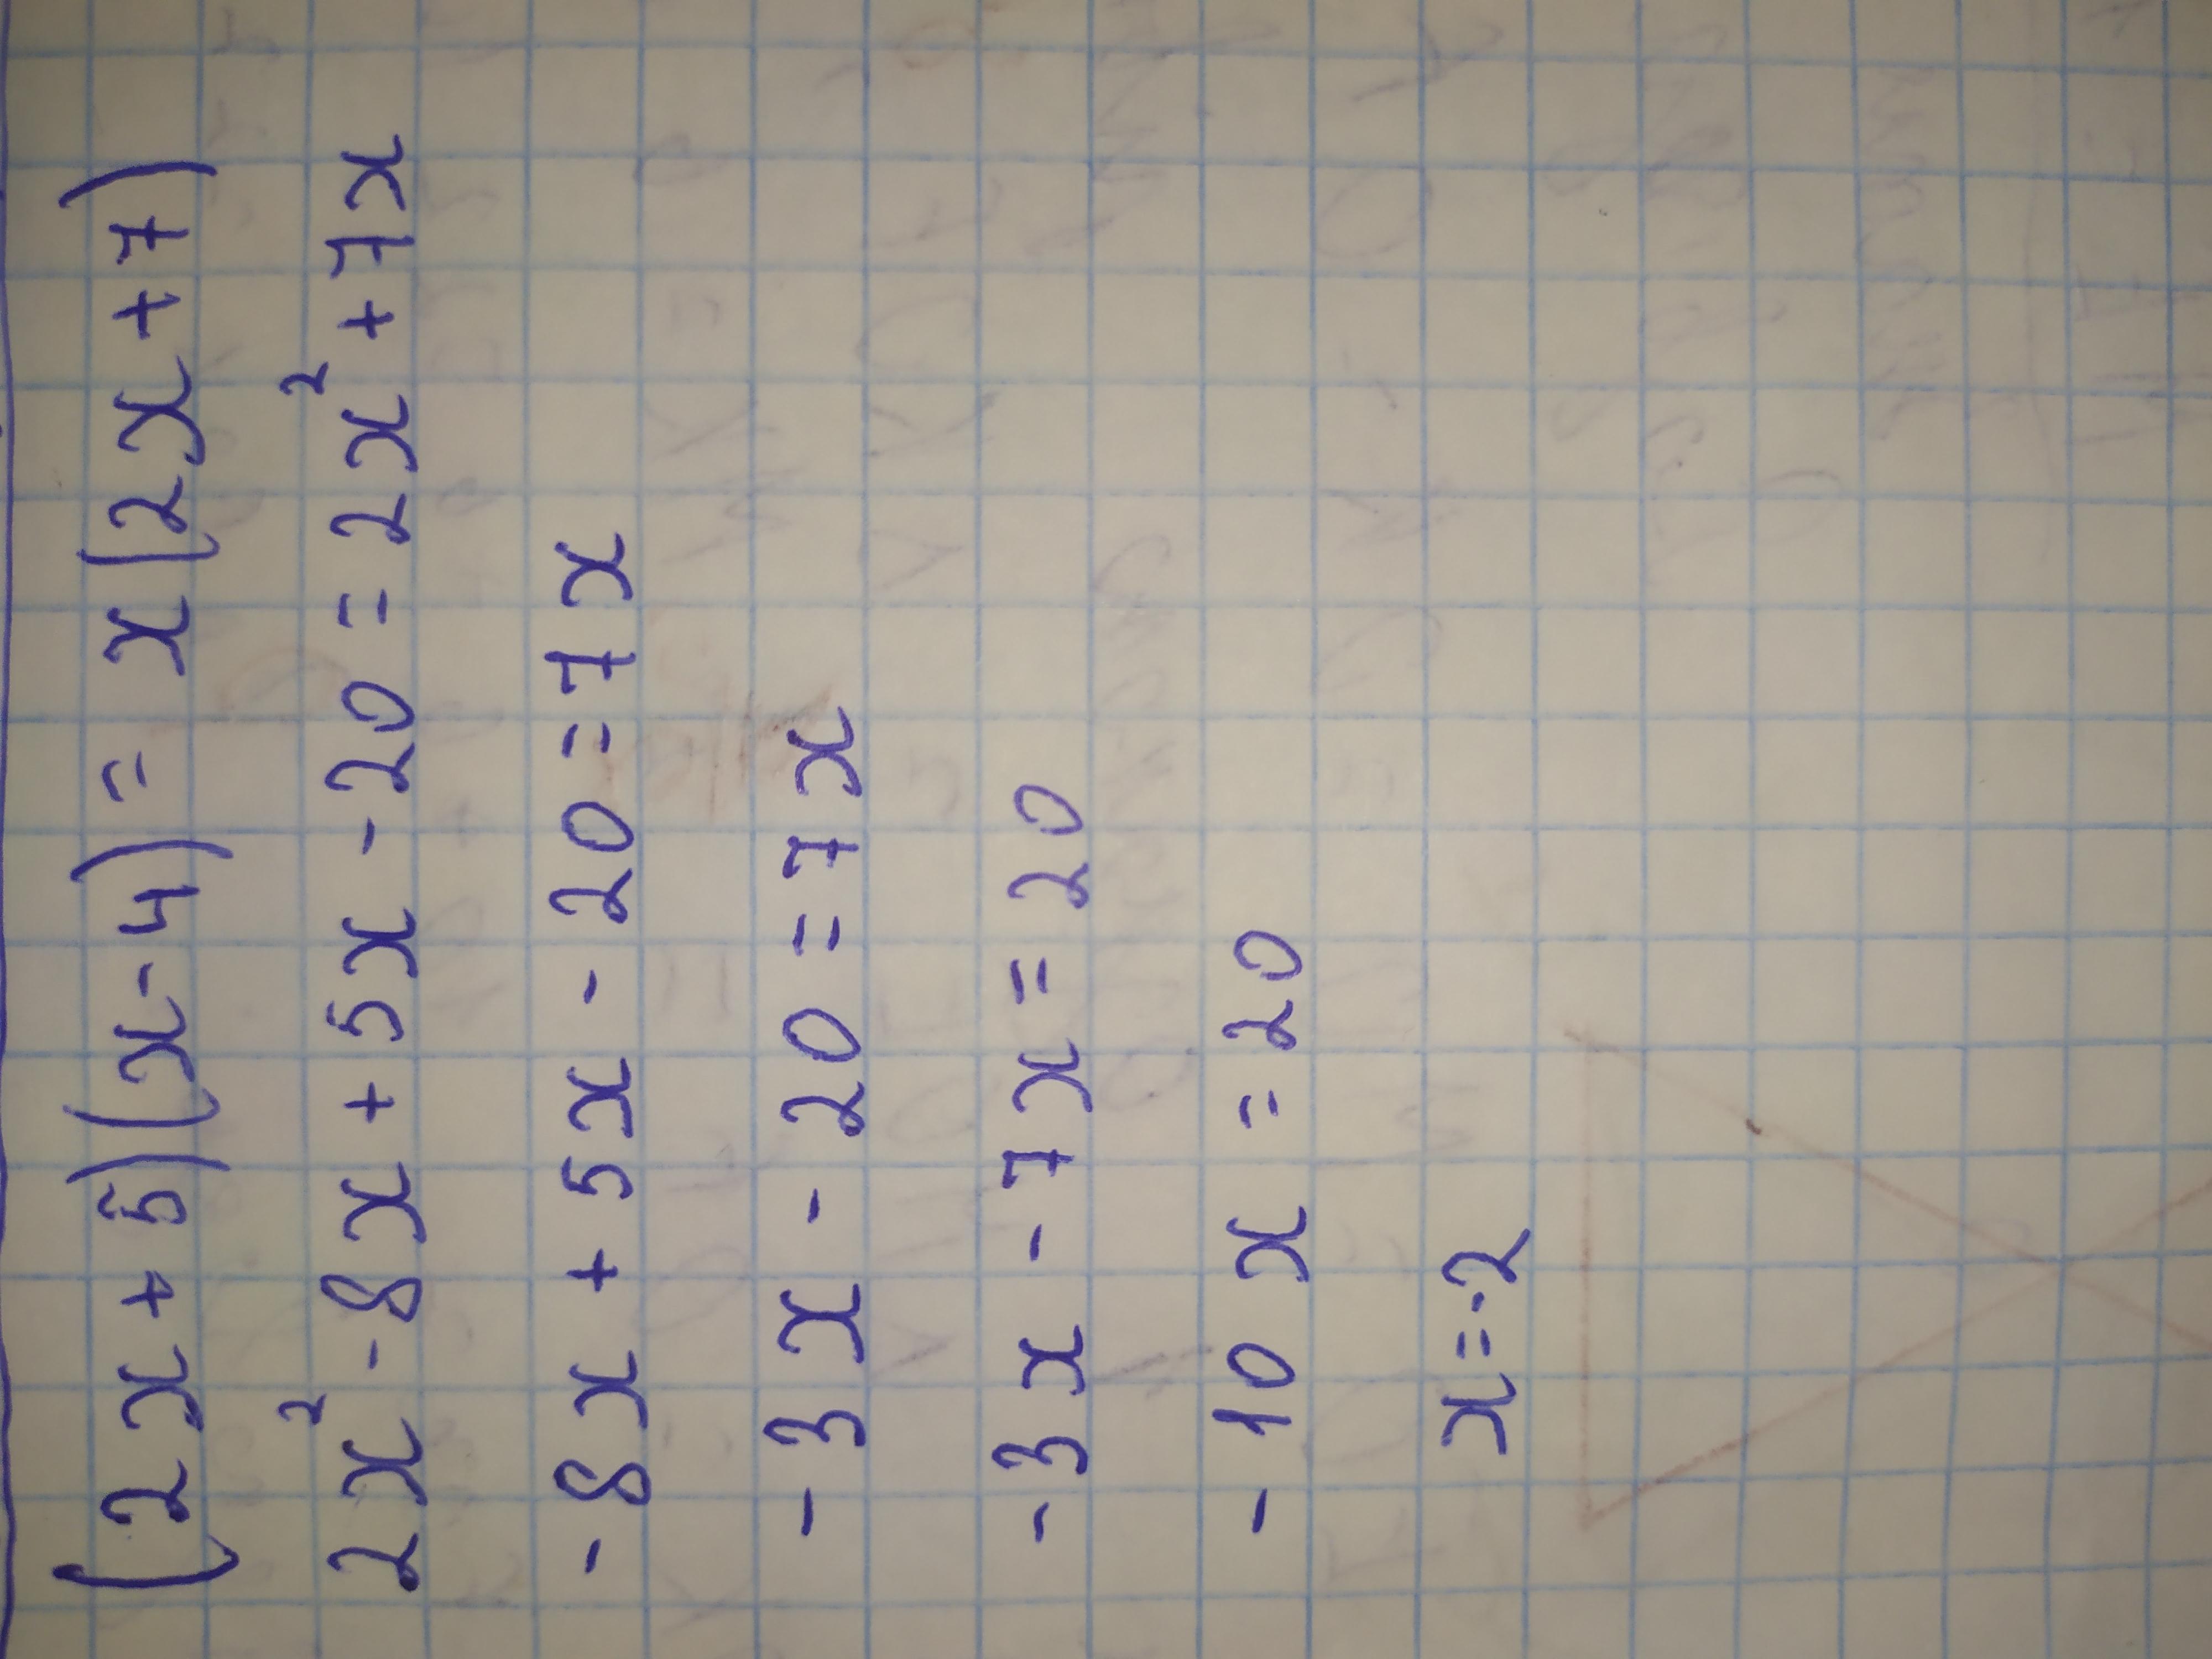 (2x+5)(x-4) = x(2x+7)
2x²-8x+5x-20=2x²+7x
-8x+5x-20=7x
-3x-20=7x
-3x-7x=20
-10x=20
x=-2